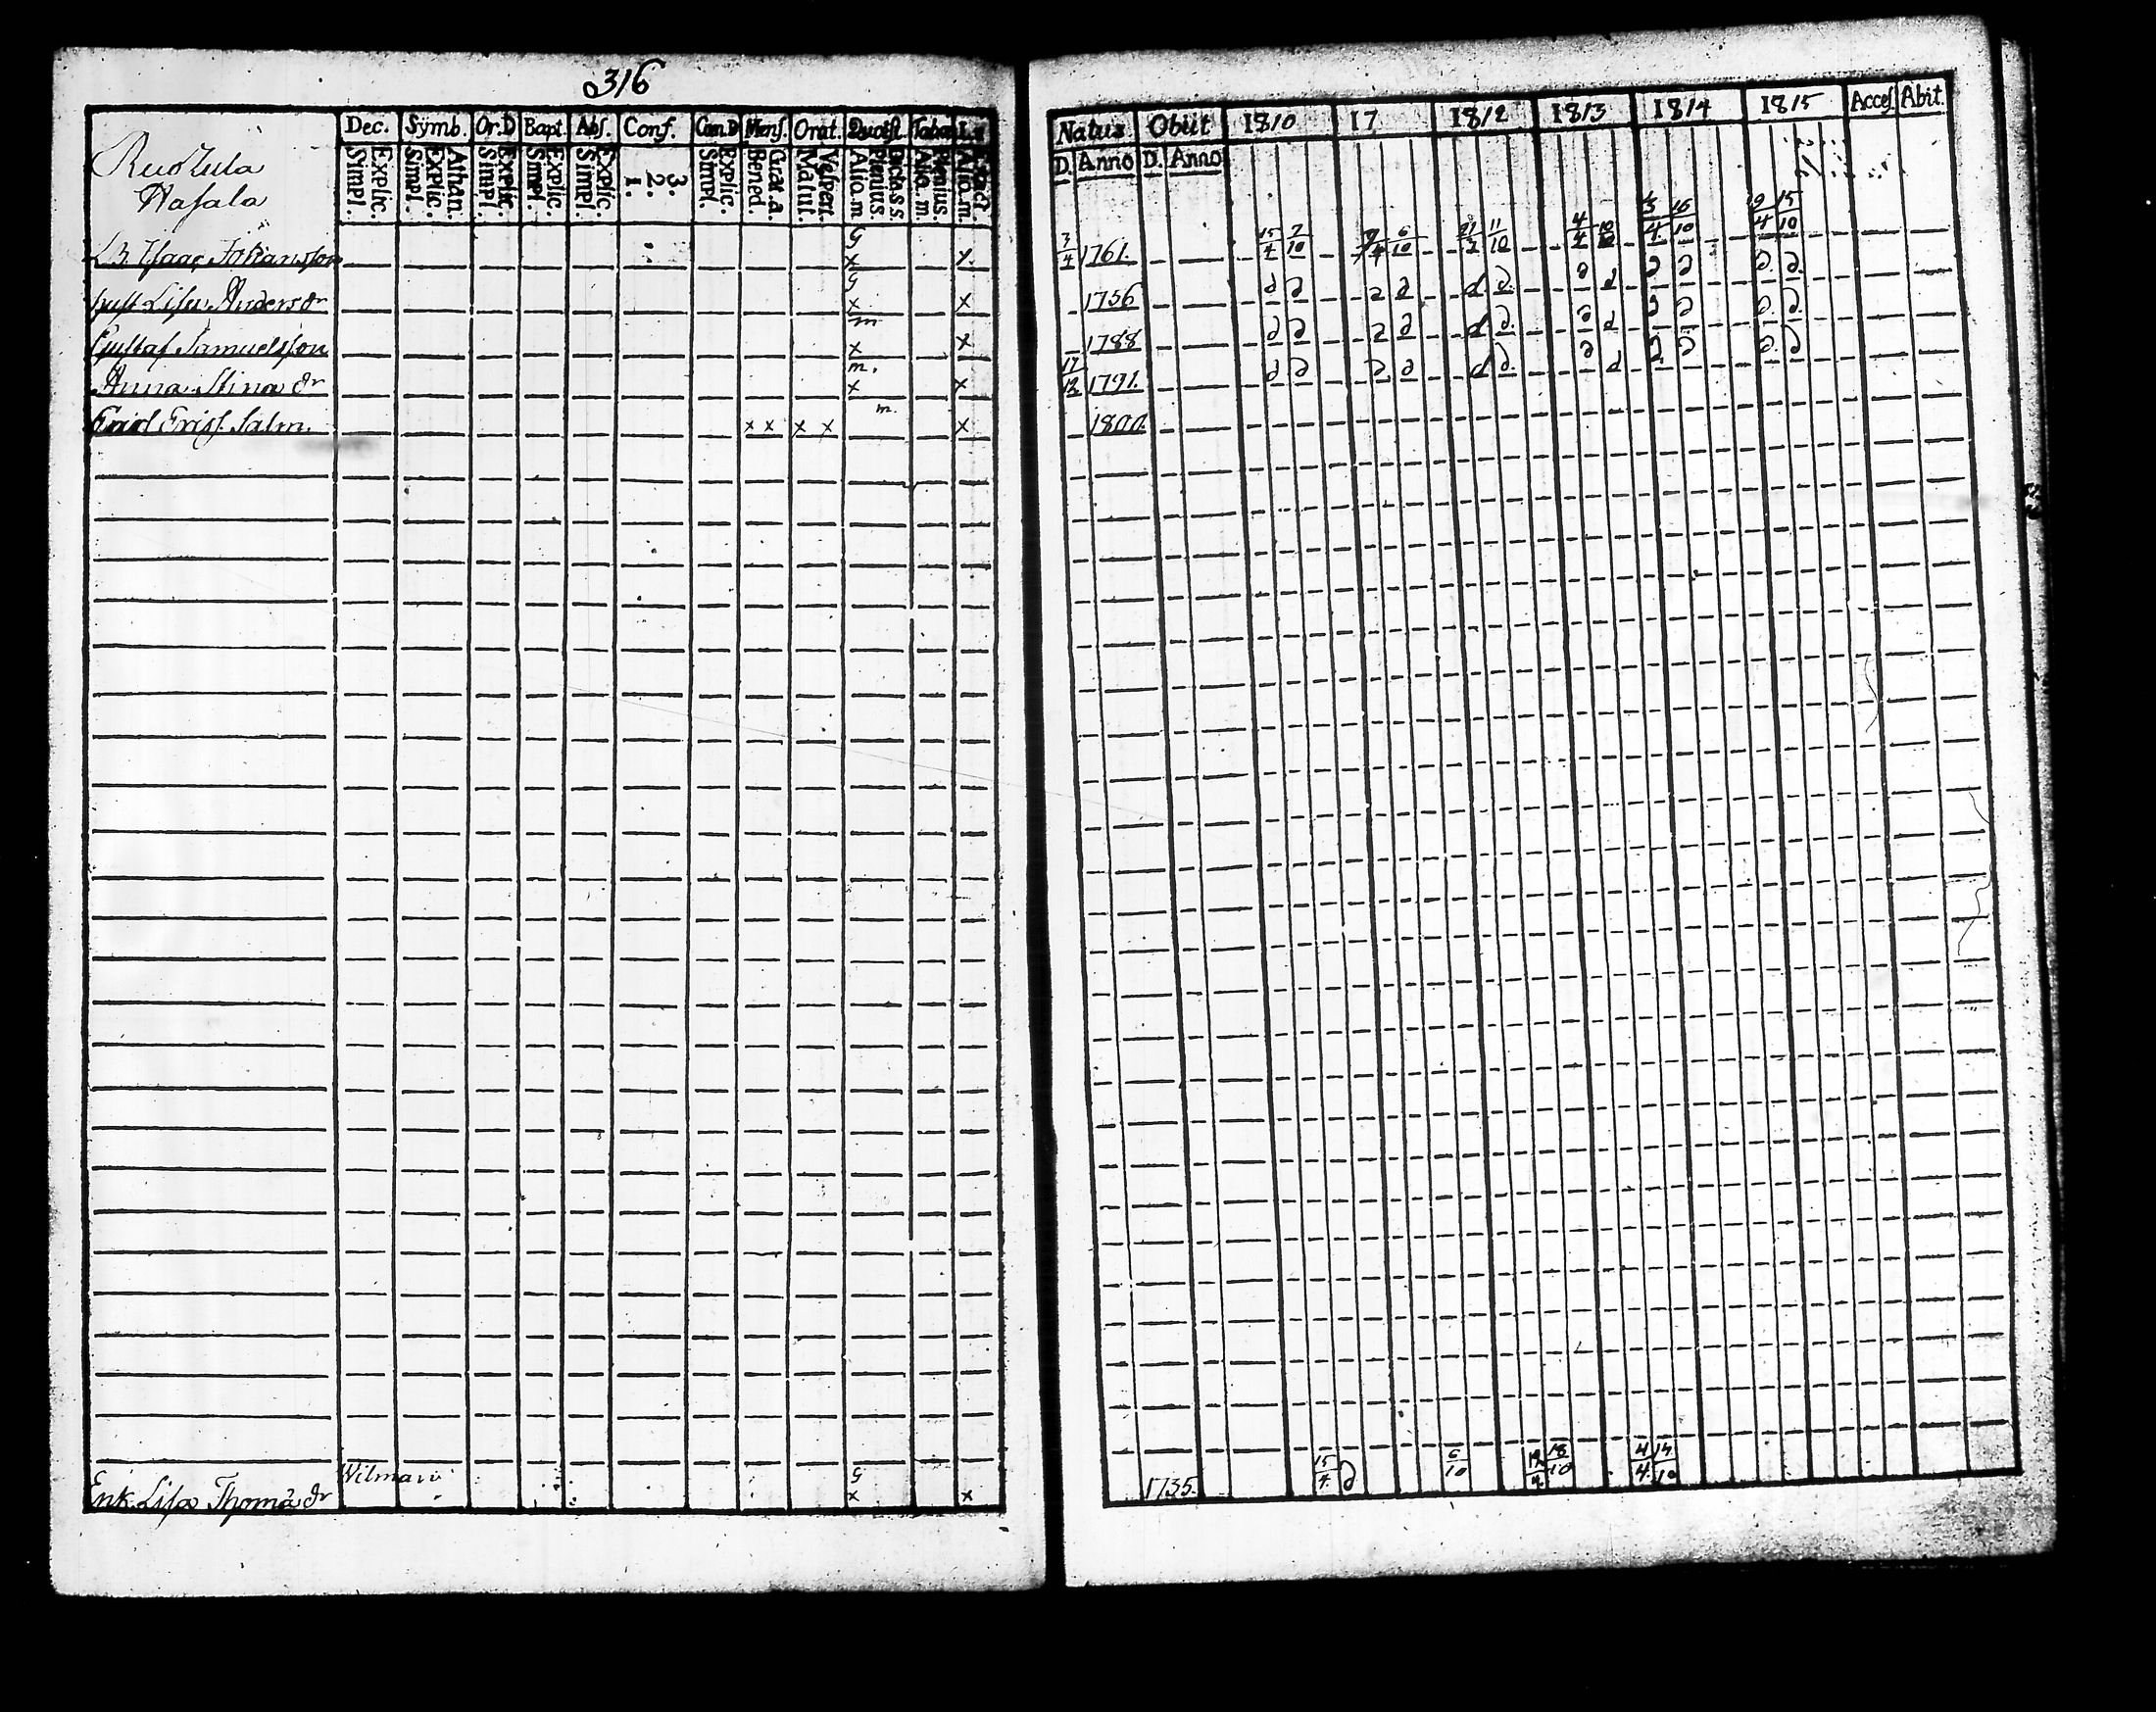 316
Dec. Symb. Or.D Bapt. Abs. Conf. Cœn.D Mens. Orat. Quæst. Taba
Simpl. Explic. Simpl. Explic. Athan. Simpl. Explic. Simpl. Explic. Simpl. Explic. 1. 2. 3. Simpl. Explic. Bened. Grat.a. Matut. Vespert. Aliq.m. Plenius. Dicta s.s. Aliq.m. Plenius. Aliq.m. Exact.
Ruotula
Hasala
G
Isaac Johansson x x
G
hust Lisa Anders dr x x
m
Gustaf Samuelsson x x
m.
Anna Stina dr x x
m.
x x x x x
Wilmari G
Enk. Lisa Thoma dr x x
Natus Obiit 1810 17 1812 1813 1814 1815 Acces. Abit.
D. Anno D. Anno
3/4 1761. 15/4 7/10 9/4 6/10 21/2 11/10 4/4 10/10 3/4 16/10 19/4 15/10
1756 d d d d d d. d d d d d. d.
1788 d d d d d d. d d d d d. d.
17/12 1791. d d d d d d. d d d d d. d
1800.
1735. 15/4 d 6/10 19/4 18/10 4/4 14/10